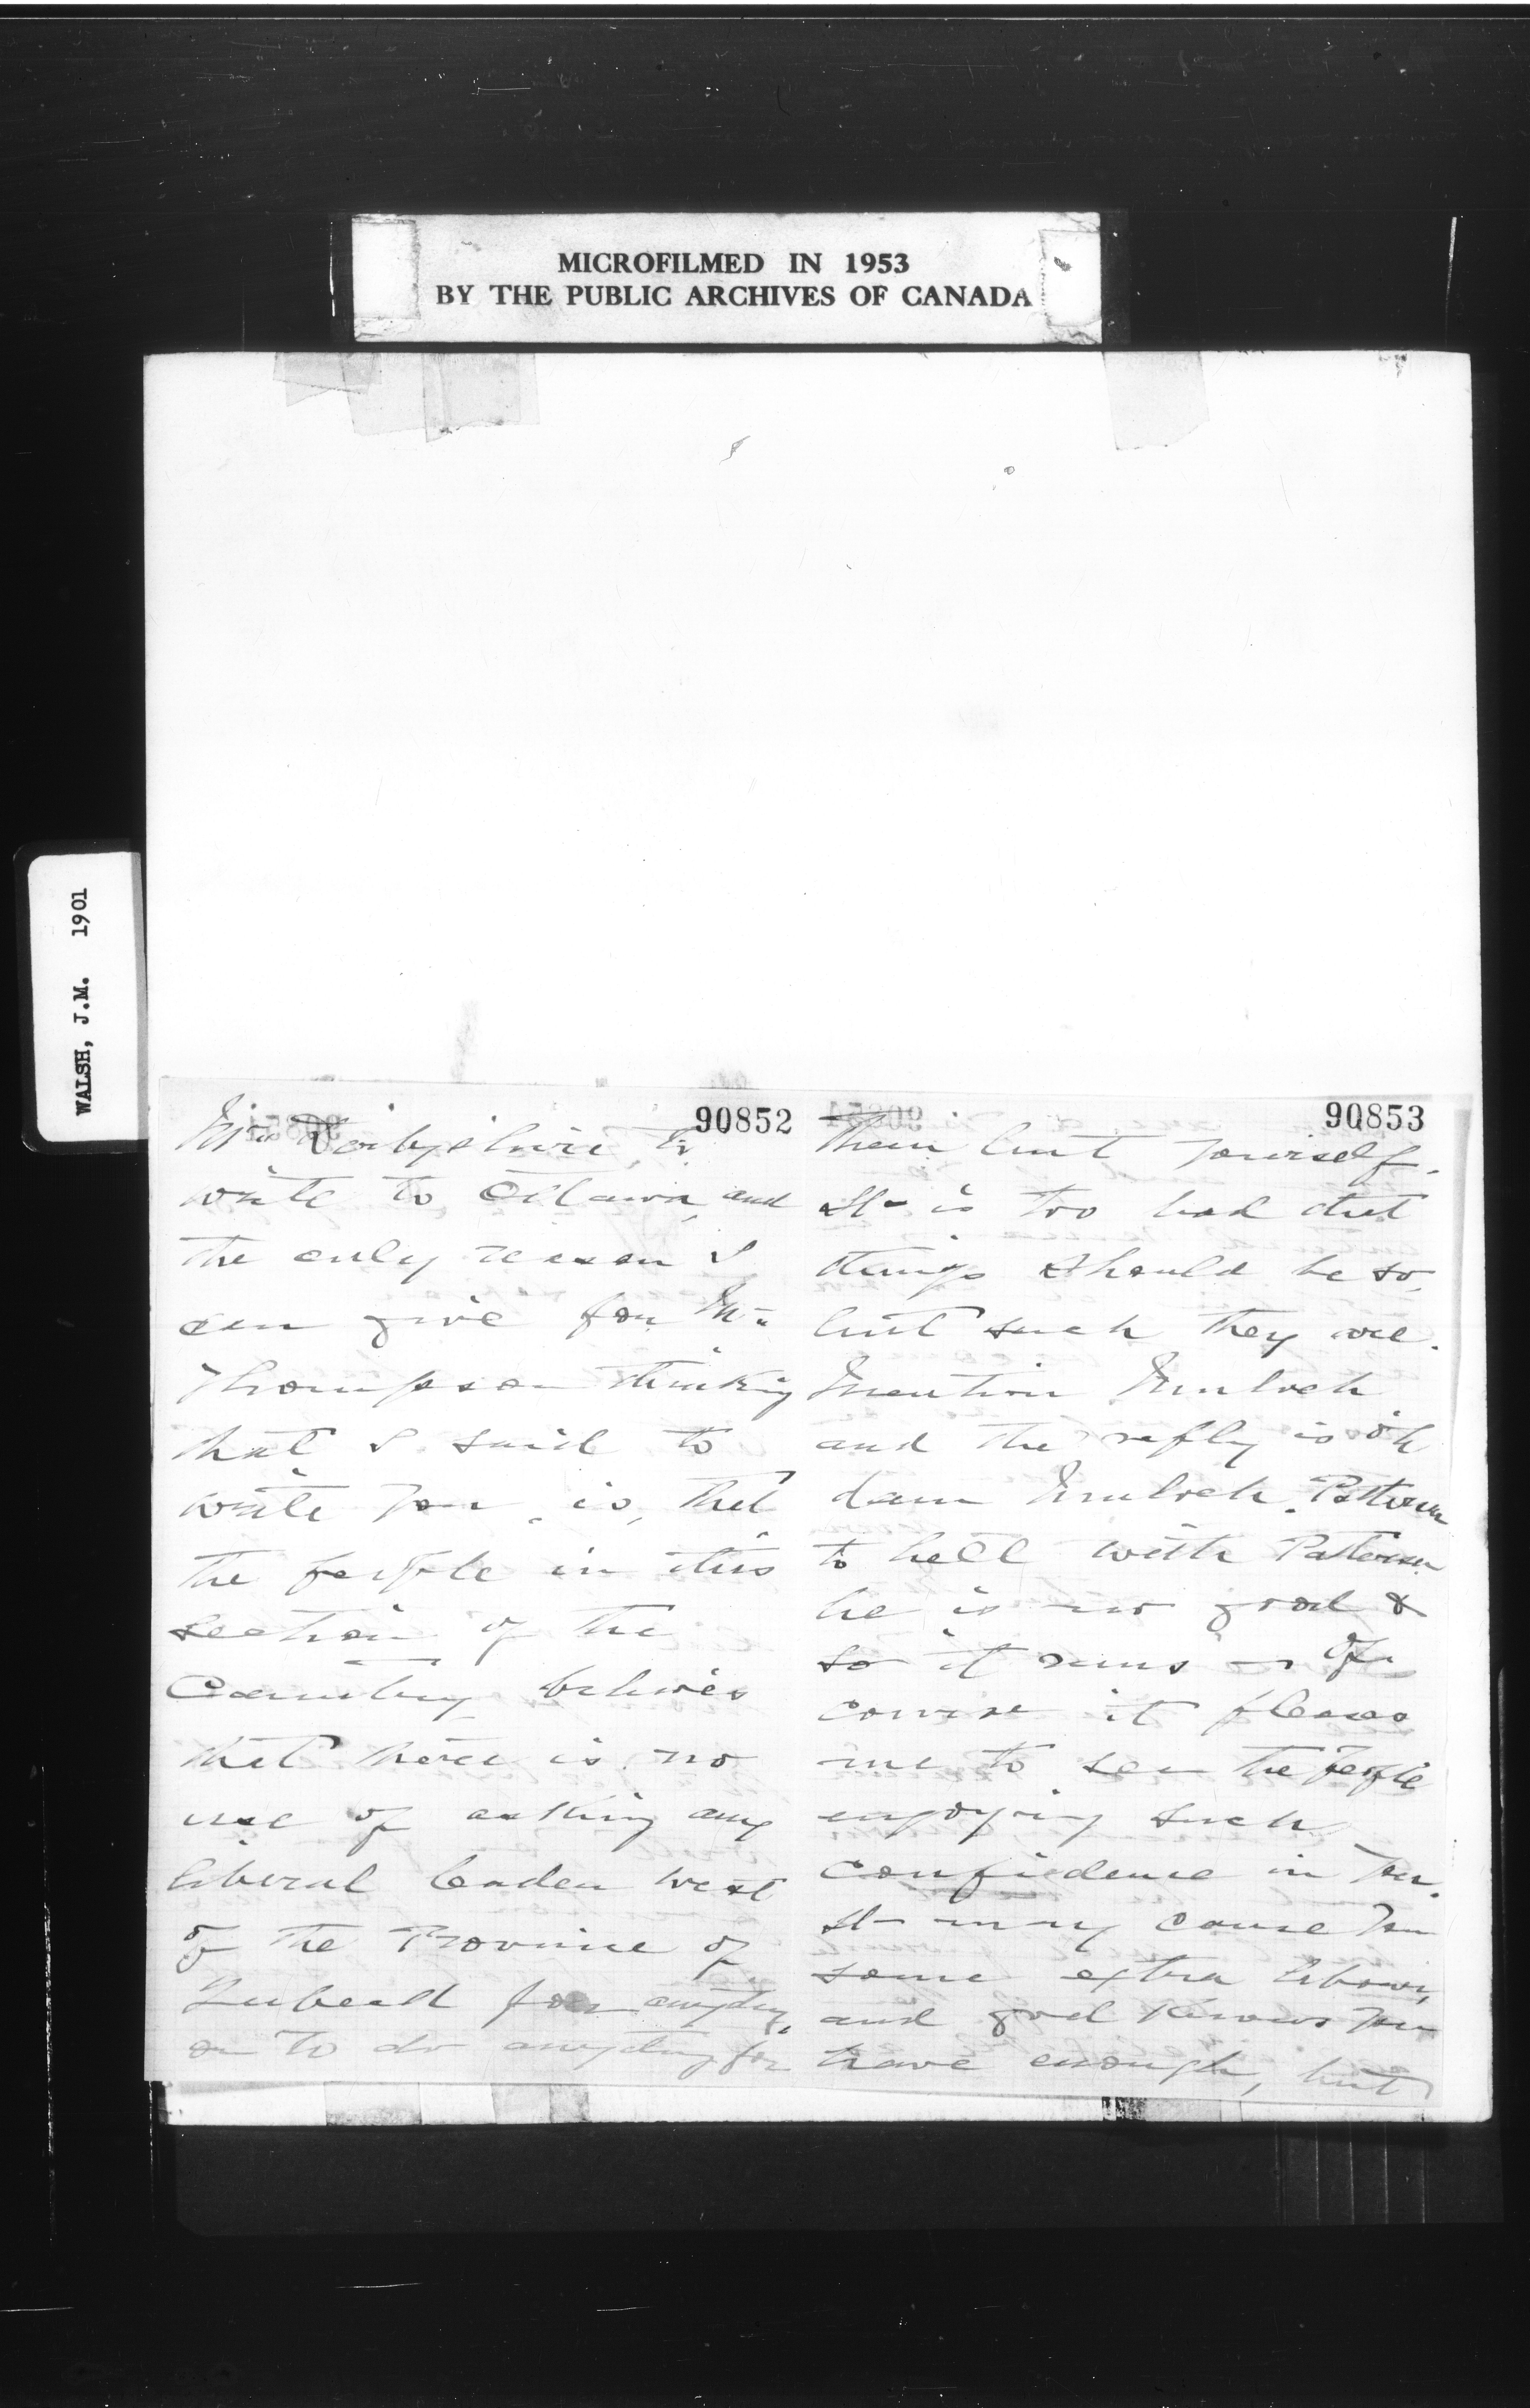 MICROFILMED IN 1953
BY THE PUBLIC ARCHIVES OF CANADA
WALSH, J.M. 1901
90852
Mr Derbyshire to
write to Ottawa, and
the only reason I
can give for Mr
Thompson thinking
that I said to
write you, is, that
the people in this
section of the
Country believes
that there is no
use of asking any
liberal leader west
of the Province of
for anything,
or to do anything for
90853
them but yourself.
It is too bad that
things should be so,
but such they are.
Mention Mulock
and the reply is oh
dam Mulock. Patterson
to hell with Patterson
he is no good &
so it runs – Of
course it pleases
me to see the people
enjoying such
confidence in you.
It may cause you
some extra labour,
and god knows you
have enough, but